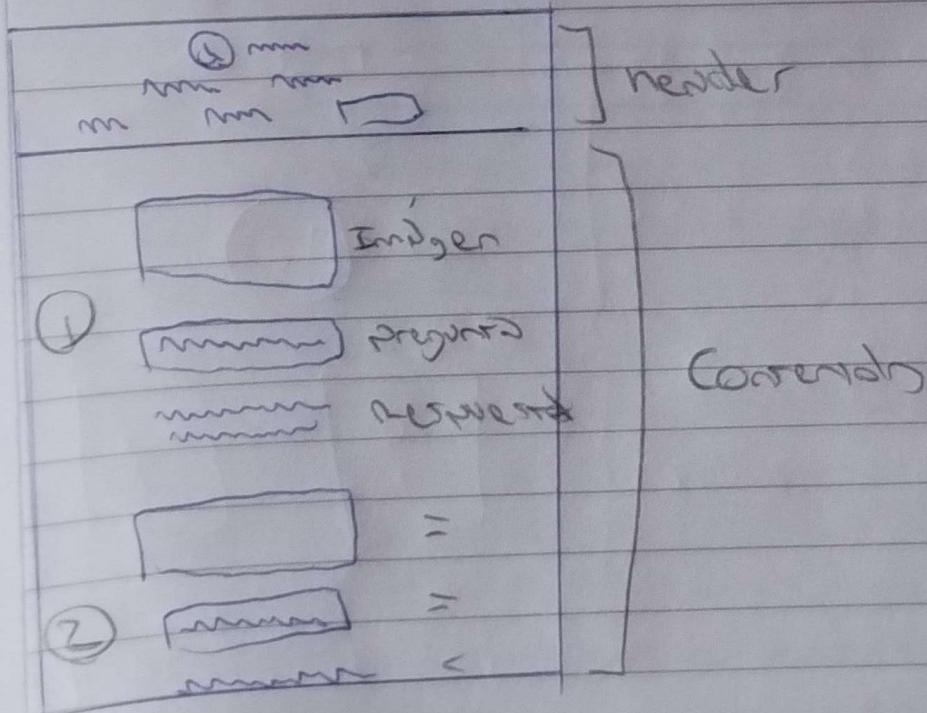 header
Imágen
① pregunta
respuesta
Contenido
=
② =